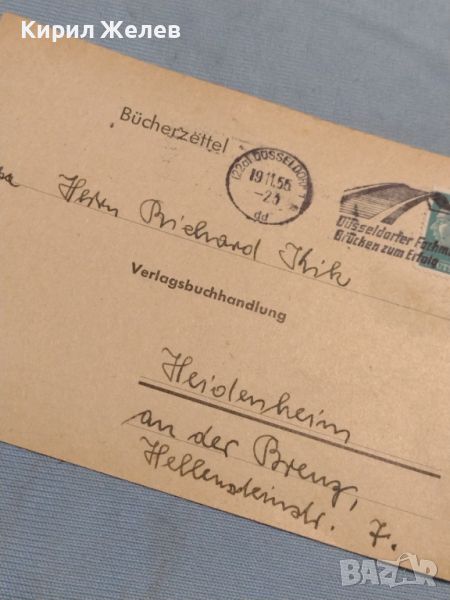 Кирил Желев
Bücherzettel
(22a) DÜSSELDORF
19.11.55
dd
Düsseldorfer Fachm
Brücken zum Erfolg
Herrn Richard Kik
Verlagsbuchhandlung
Heidenheim
an der Brenz,
Hellensteinstr. 7.
BAZAR